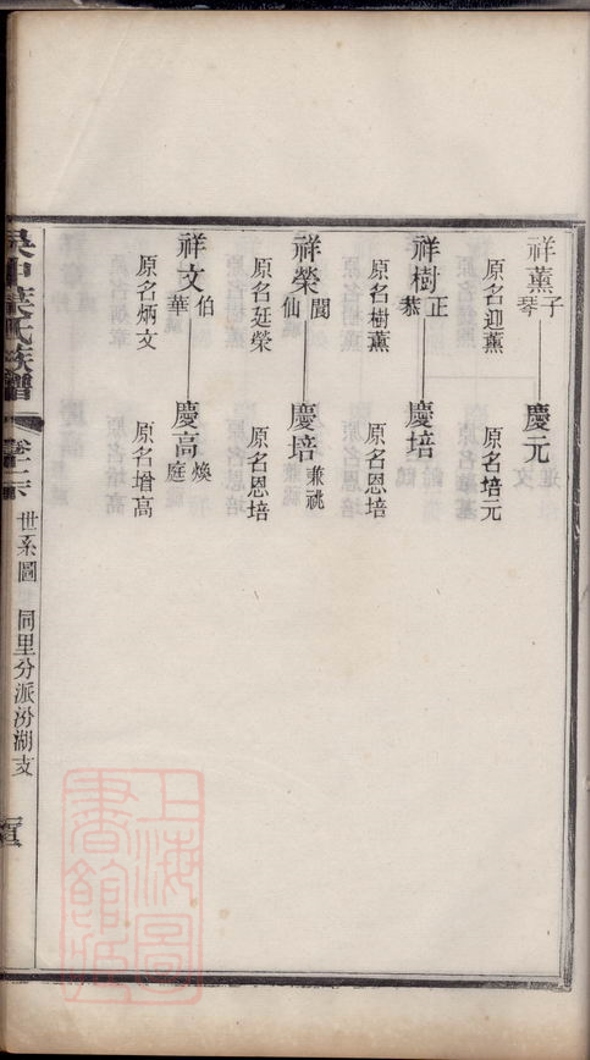 祥薰 子琴
原名迎薰
慶元
原名培元
祥樹 正恭
原名樹薰
慶培
原名恩培
祥榮 閬仙
原名廷榮
慶培 兼祧
原名恩培
祥文 伯華
原名炳文
慶高 煥庭
原名增高
吳中葉氏族譜
世系圖 同里分派汾湖支
上海圖書館藏